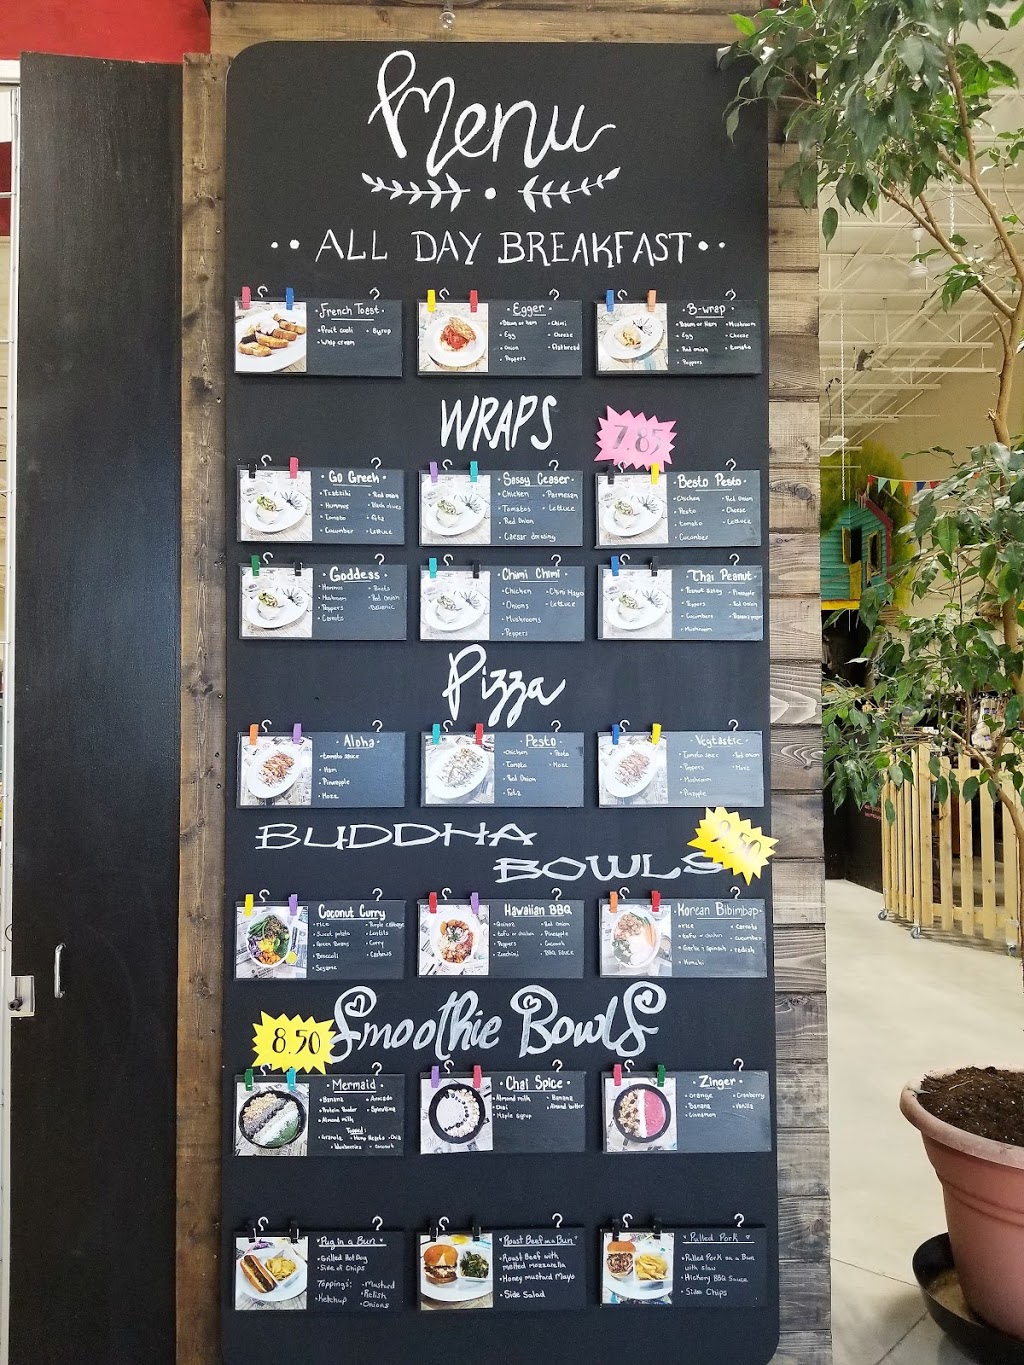 Menu
·· ALL DAY BREAKFAST ··
· French Toast ·
• Fruit cooli • Syrup
• Whip cream
· Egger ·
• Bacon or ham • Chimi
• Egg • Cheese
• Onion • Flatbread
• Peppers
· B-wrap ·
• Bacon or Ham • Mushroom
• Egg • Cheese
• Red onion • tomato
• Peppers
WRAPS
7.85
· Go Green ·
• Tzatziki • Red onion
• Hummus • Black olives
• Tomato • Feta
• Cucumber • Lettuce
· Sassy Ceaser ·
• Chicken • Parmesan
• Tomatos • Lettuce
• Red Onion
• Caesar dressing
· Besto Pesto ·
• Chicken • Red Onion
• Pesto • Cheese
• tomato • Lettuce
• Cucumber
· Goddess ·
• Hummus
• Mushroom • Red Onion
• Peppers • Balsamic
• Carrots
· Chimi Chimi ·
• Chicken • Chimi Mayo
• Onions • Lettuce
• Mushrooms
• Peppers
· Thai Peanut ·
• Pineapple
• Peppers • Red Onion
• Cucumbers
• Mushroom
Pizza
· Aloha ·
• tomato sauce
• Ham
• Pineapple
• Mozz
· Pesto ·
• Chicken • Pesto
• Tomato • Mozz
• Red Onion
• Feta
· Vegtastic ·
• Tomato sauce • Red onion
• Peppers • Mozz
• Mushroom
• Pinapple
BUDDHA
BOWLS
9.50
· Coconut Curry ·
• rice • Purple cabbage
• Sweet potato • Lentils
• Green Beans • Curry
• Broccoli • Cashews
• Sesame
· Hawaiian BBQ ·
• Quinoa • Red onion
• tofu or chicken • Pineapple
• Peppers • Coconut
• Zucchini • BBQ sauce
· Korean Bibimbap ·
• rice • Carrots
• tofu or chicken • cucumber
• Garlic + Spinach • radish
• Kimchi
8.50
Smoothie Bowls
· Mermaid ·
• Banana • Avocado
• Protein Powder • Spirulina
• Almond milk
Topped:
• Granola • Hemp Hearts • Chia
• blueberries • coconut
· Chai Spice ·
• Almond milk • Banana
• Chai • Almond butter
• Maple syrup
· Zinger ·
• Orange • Cranberry
• Banana • Vanilla
• Cinnamon
Pug in a Bun
• Grilled Hot Dog
• Side of Chips
Toppings: • Mustard
• Ketchup • Relish
• Onions
Roast Beef in a Bun
• Roast Beef with
melted mozzarella
• Honey mustard Mayo
• Side Salad
Pulled Pork
• Pulled Pork on a Bun
with slaw
• Hickory BBQ Sauce
• Side Chips